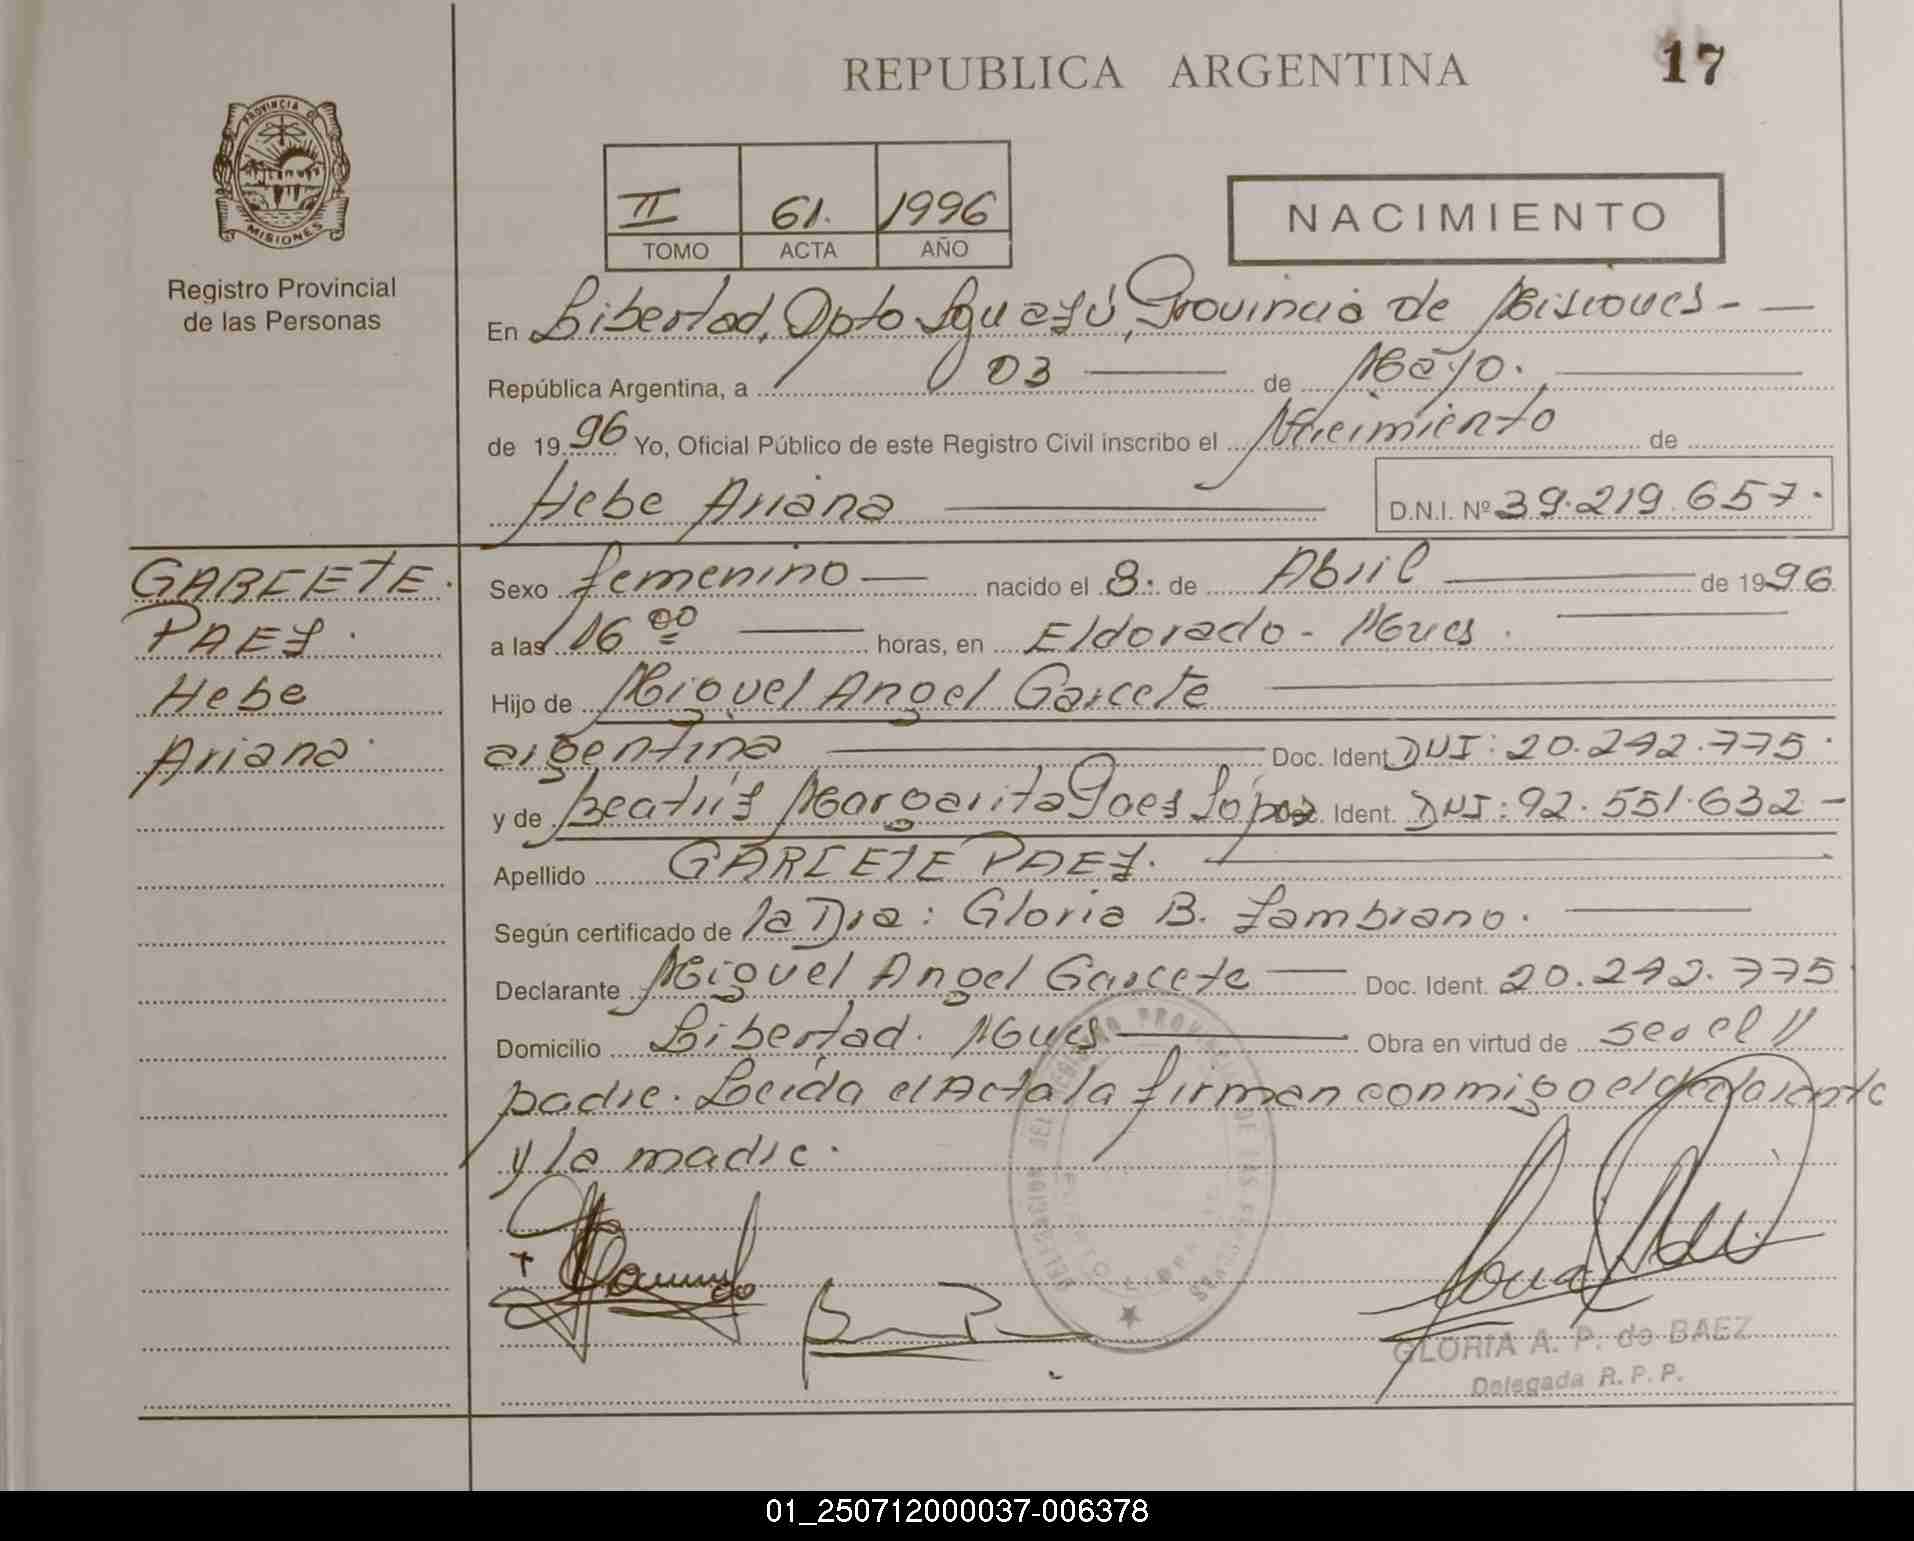 REPUBLICA ARGENTINA
17
PROVINCIA DE
MISIONES
Registro Provincial
de las Personas
II 61. 1996
TOMO ACTA AÑO
NACIMIENTO
En Libertad, Dpto Iguazú, Provincia de Misiones - —
República Argentina, a 03 — de Mayo. —
de 1996 Yo, Oficial Público de este Registro Civil inscribo el Nacimiento de
Hebe Ariana — D.N.I. Nº 39.219.657.
GARCETE.
PAEZ.
Hebe
Ariana.
Sexo femenino — nacido el 8. de Abril — de 1996
a las 16 00 — horas, en Eldorado - Mnes. —
Hijo de Miguel Angel Garcete —
argentina — Doc. Ident. DNI: 20.242.775.
y de Beatríz Margarita Paez López Doc. Ident. DNI: 92.551.632 -
Apellido GARCETE PAEZ. —
Según certificado de la Dra: Gloria B. Zambrano. —
Declarante Miguel Angel Garcete — Doc. Ident. 20.242.775
Domicilio Libertad. Mnes — Obra en virtud de ser el //
padre. Leída el Acta la firman conmigo el declarante
y la madre.
GLORIA A. P. de BAEZ
Delegada R. P. P.
01_250712000037-006378